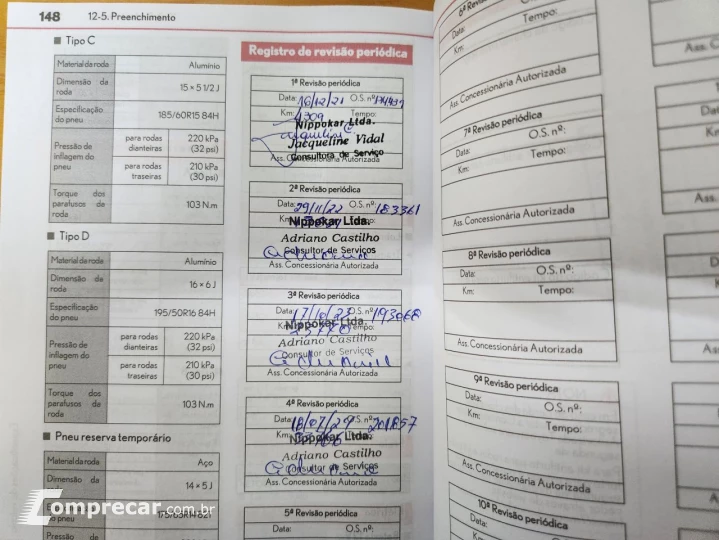 148 12-5. Preenchimento
■ Tipo C
Material da roda Alumínio
Dimensão da roda 15 × 5 1/2 J
Especificação do pneu 185/60R15 84H
Pressão de inflagem do pneu
para rodas dianteiras 220 kPa (32 psi)
para rodas traseiras 210 kPa (30 psi)
Torque dos parafusos de roda 103 N.m
■ Tipo D
Material da roda Alumínio
Dimensão da roda 16 × 6 J
Especificação do pneu 195/50R16 84H
Pressão de inflagem do pneu
para rodas dianteiras 220 kPa (32 psi)
para rodas traseiras 210 kPa (30 psi)
Torque dos parafusos de roda 103 N.m
■ Pneu reserva temporário
Material da roda Aço
Dimensão da roda 14 × 5 J
do pneu
Comprecar.com.br
Registro de revisão periódica
1ª Revisão periódica
Data: 16/12/21 O.S. nº:
Km: 4309 Tempo:
Nippokar Ltda.
Jacqueline Vidal
Consultora de Serviço
Ass. Concessionária Autorizada
2ª Revisão periódica
Data: 29/11/22 O.S. nº: 183361
Km:
Nippokar Ltda.
Adriano Castilho
Consultor de Serviços
Ass. Concessionária Autorizada
3ª Revisão periódica
Data: 17/10/23 O.S. nº:
Km: Tempo:
Nippokar Ltda.
Adriano Castilho
Consultor de Serviços
Ass. Concessionária Autorizada
4ª Revisão periódica
Data: O.S. nº:
Km:
Nippokar Ltda.
Adriano Castilho
Consultor de Serviços
Ass. Concessionária Autorizada
5ª Revisão periódica
Data: O.S. nº:
6ª
Data:
Km: Tempo:
Ass. Concessionária Autorizada
7ª Revisão periódica
Data: O.S. nº:
Km: Tempo:
Ass. Concessionária Autorizada
8ª Revisão periódica
Data: O.S. nº:
Km: Tempo:
Ass. Concessionária Autorizada
9ª Revisão periódica
Data: O.S. nº:
Km: Tempo:
Ass. Concessionária Autorizada
10ª Revisão periódica
Data: O.S. nº: